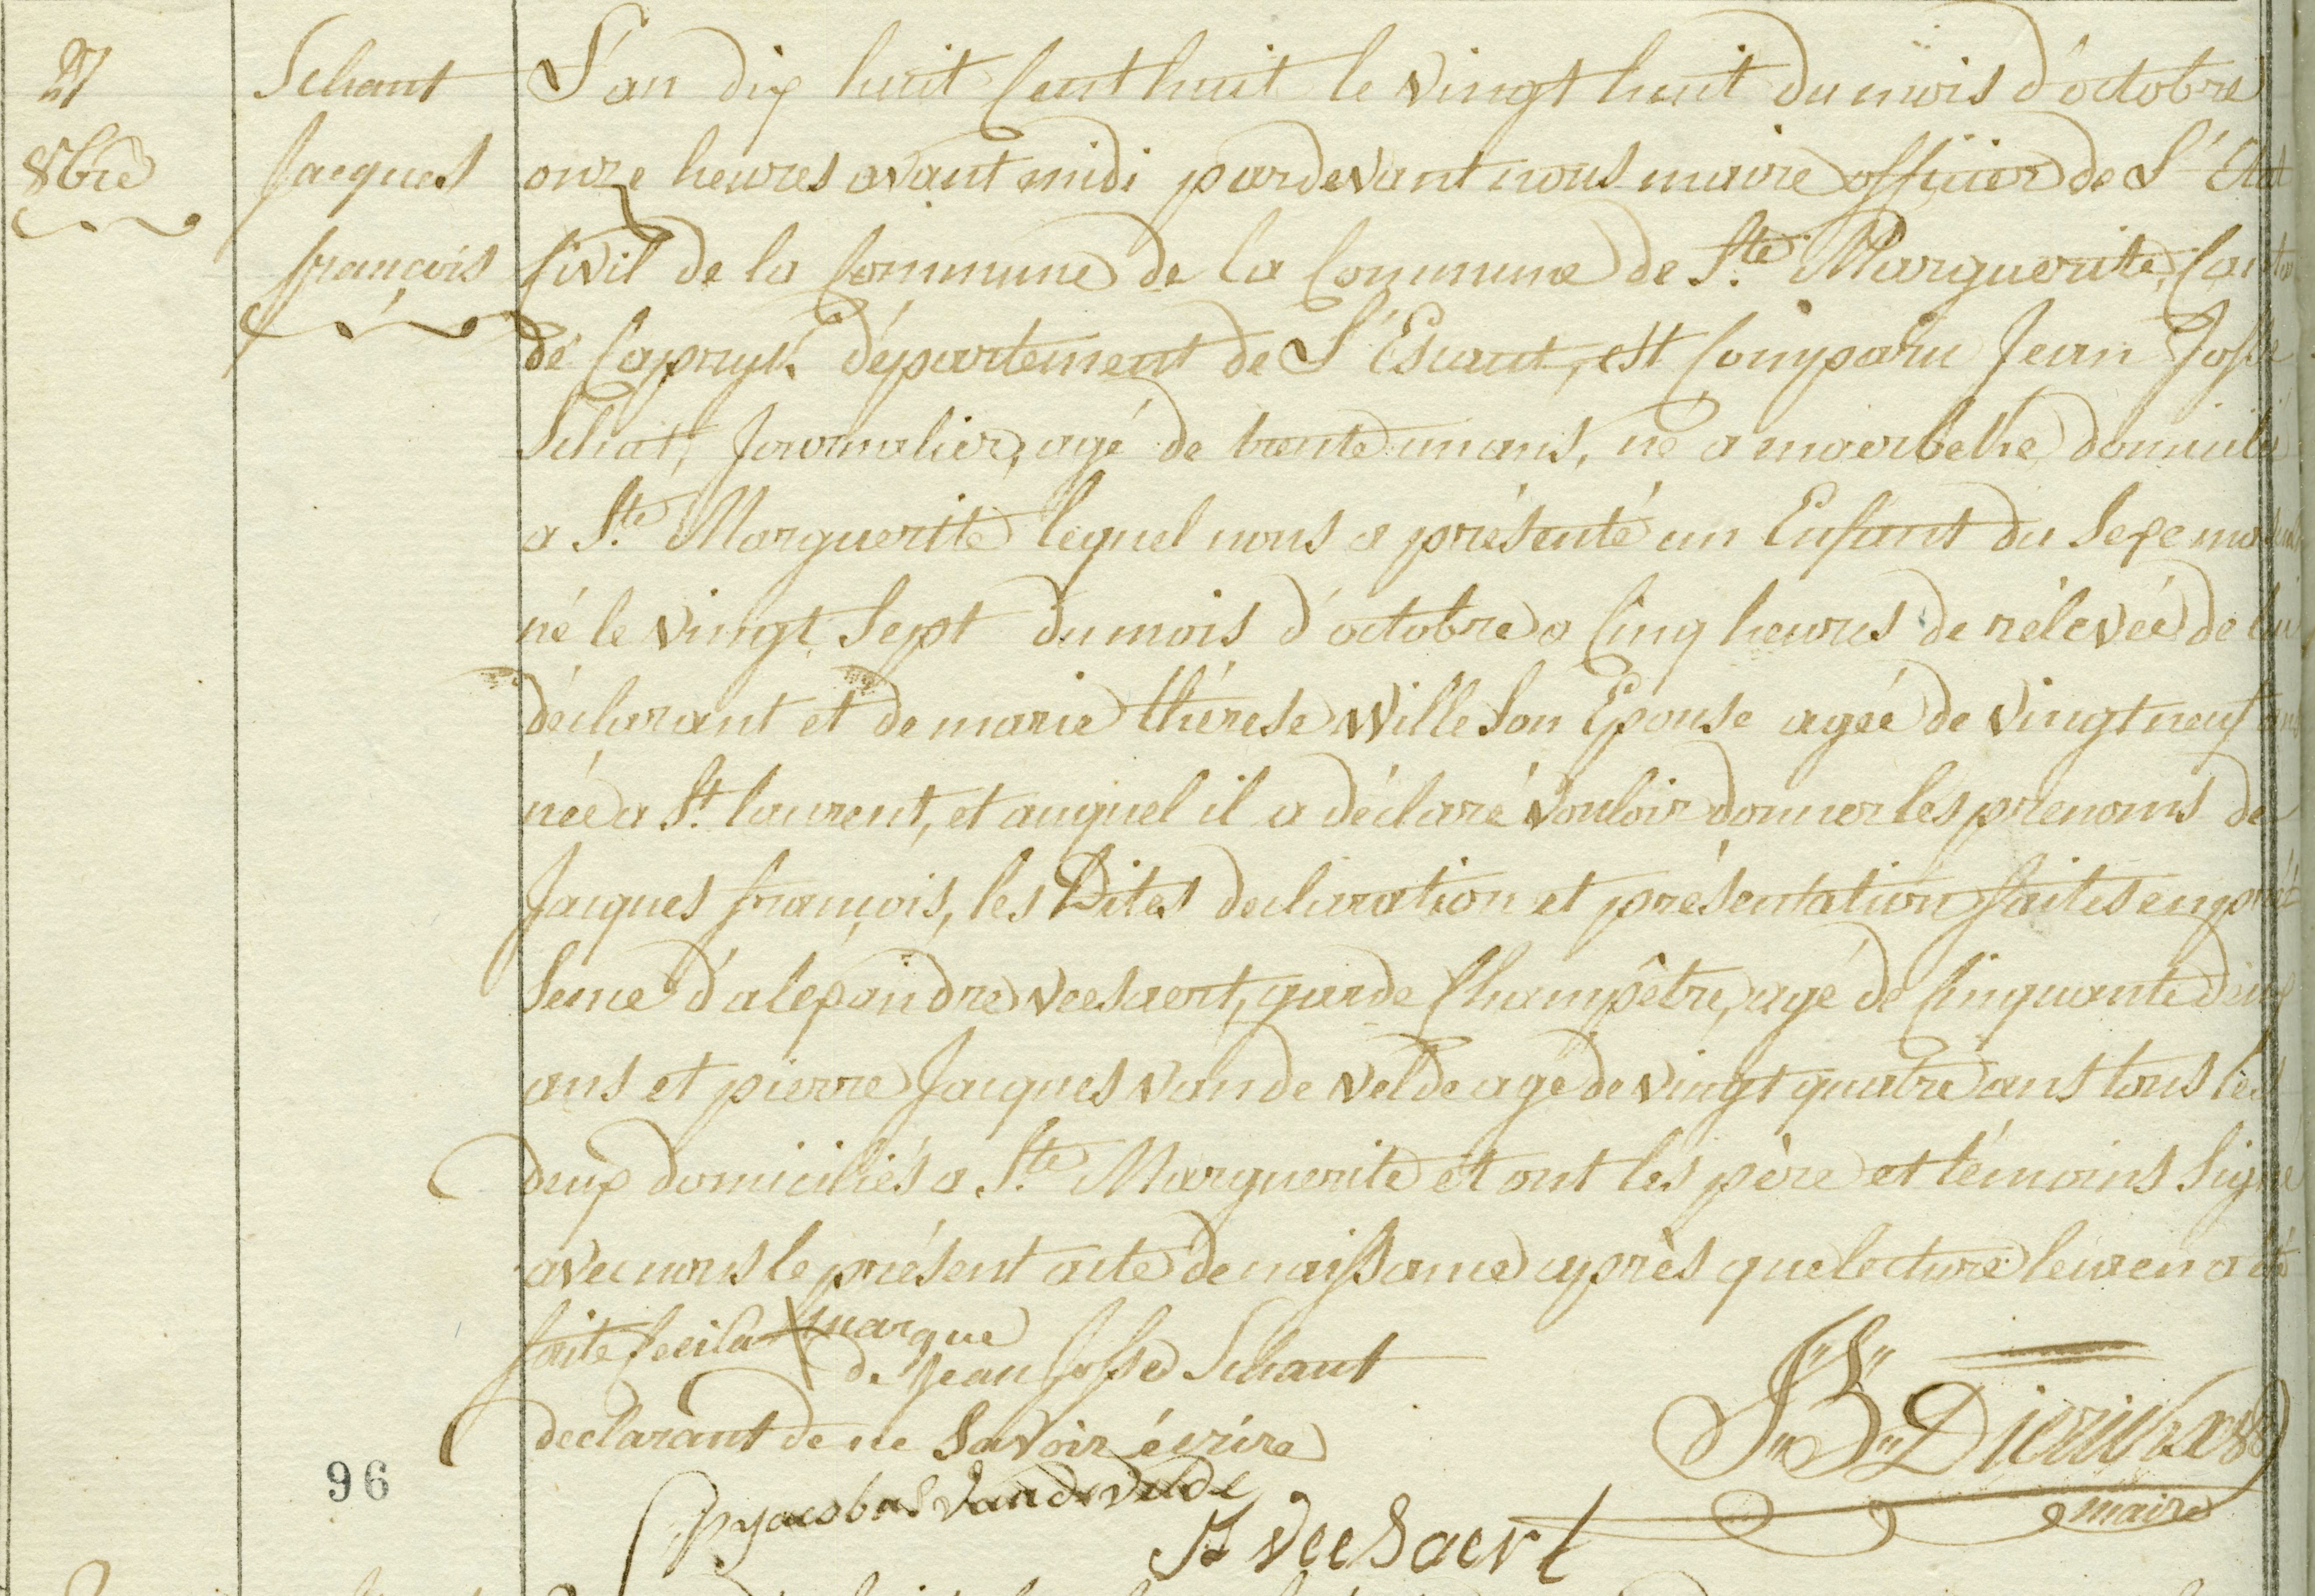 27
8bre
Schant
Jacques
françois
L'an dix huit Cent huit le vingt huit du mois d'octobre
onze heures avant midi pardevant nous maire officier de L'Etat
Civil de la Commune de la Commune de Ste. Marguerite, Canton
de Capryk département de L'Escaut, est Comparu Jean Josse
Schat, Journalier, agé de trente un ans, né a maerbeke domicilié
a Ste. Marguerite lequel nous a présenté un Enfant du Sexe masculin
né le vingt Sept du mois d'octobre a Cinq heures de rélevée de lui
déclarant et de marie thérese Wille Son Epouse agée de vingt neuf ans
née a St. laurent, et auquel il a déclaré vouloir donner les prenoms de
Jacques françois, les Dites declaration et présentation faites en pré
Sence d'alexandre veesaert, garde Champêtre, agé de Cinquante deux
ans et pierre Jacques van de velde agé de vingt quatre ans tous les
deux domiciliés a Ste. Marguerite et ont les père et témoins Signé
avec nous le présent acte de naissance après que lecture leur en a été
faite Ceci la X marque
de Jean Josse Schant
declarant de ne Savoir écrire
J: B: Dierickx
maire
P Jacobus Vandevelde
A veesaert
96